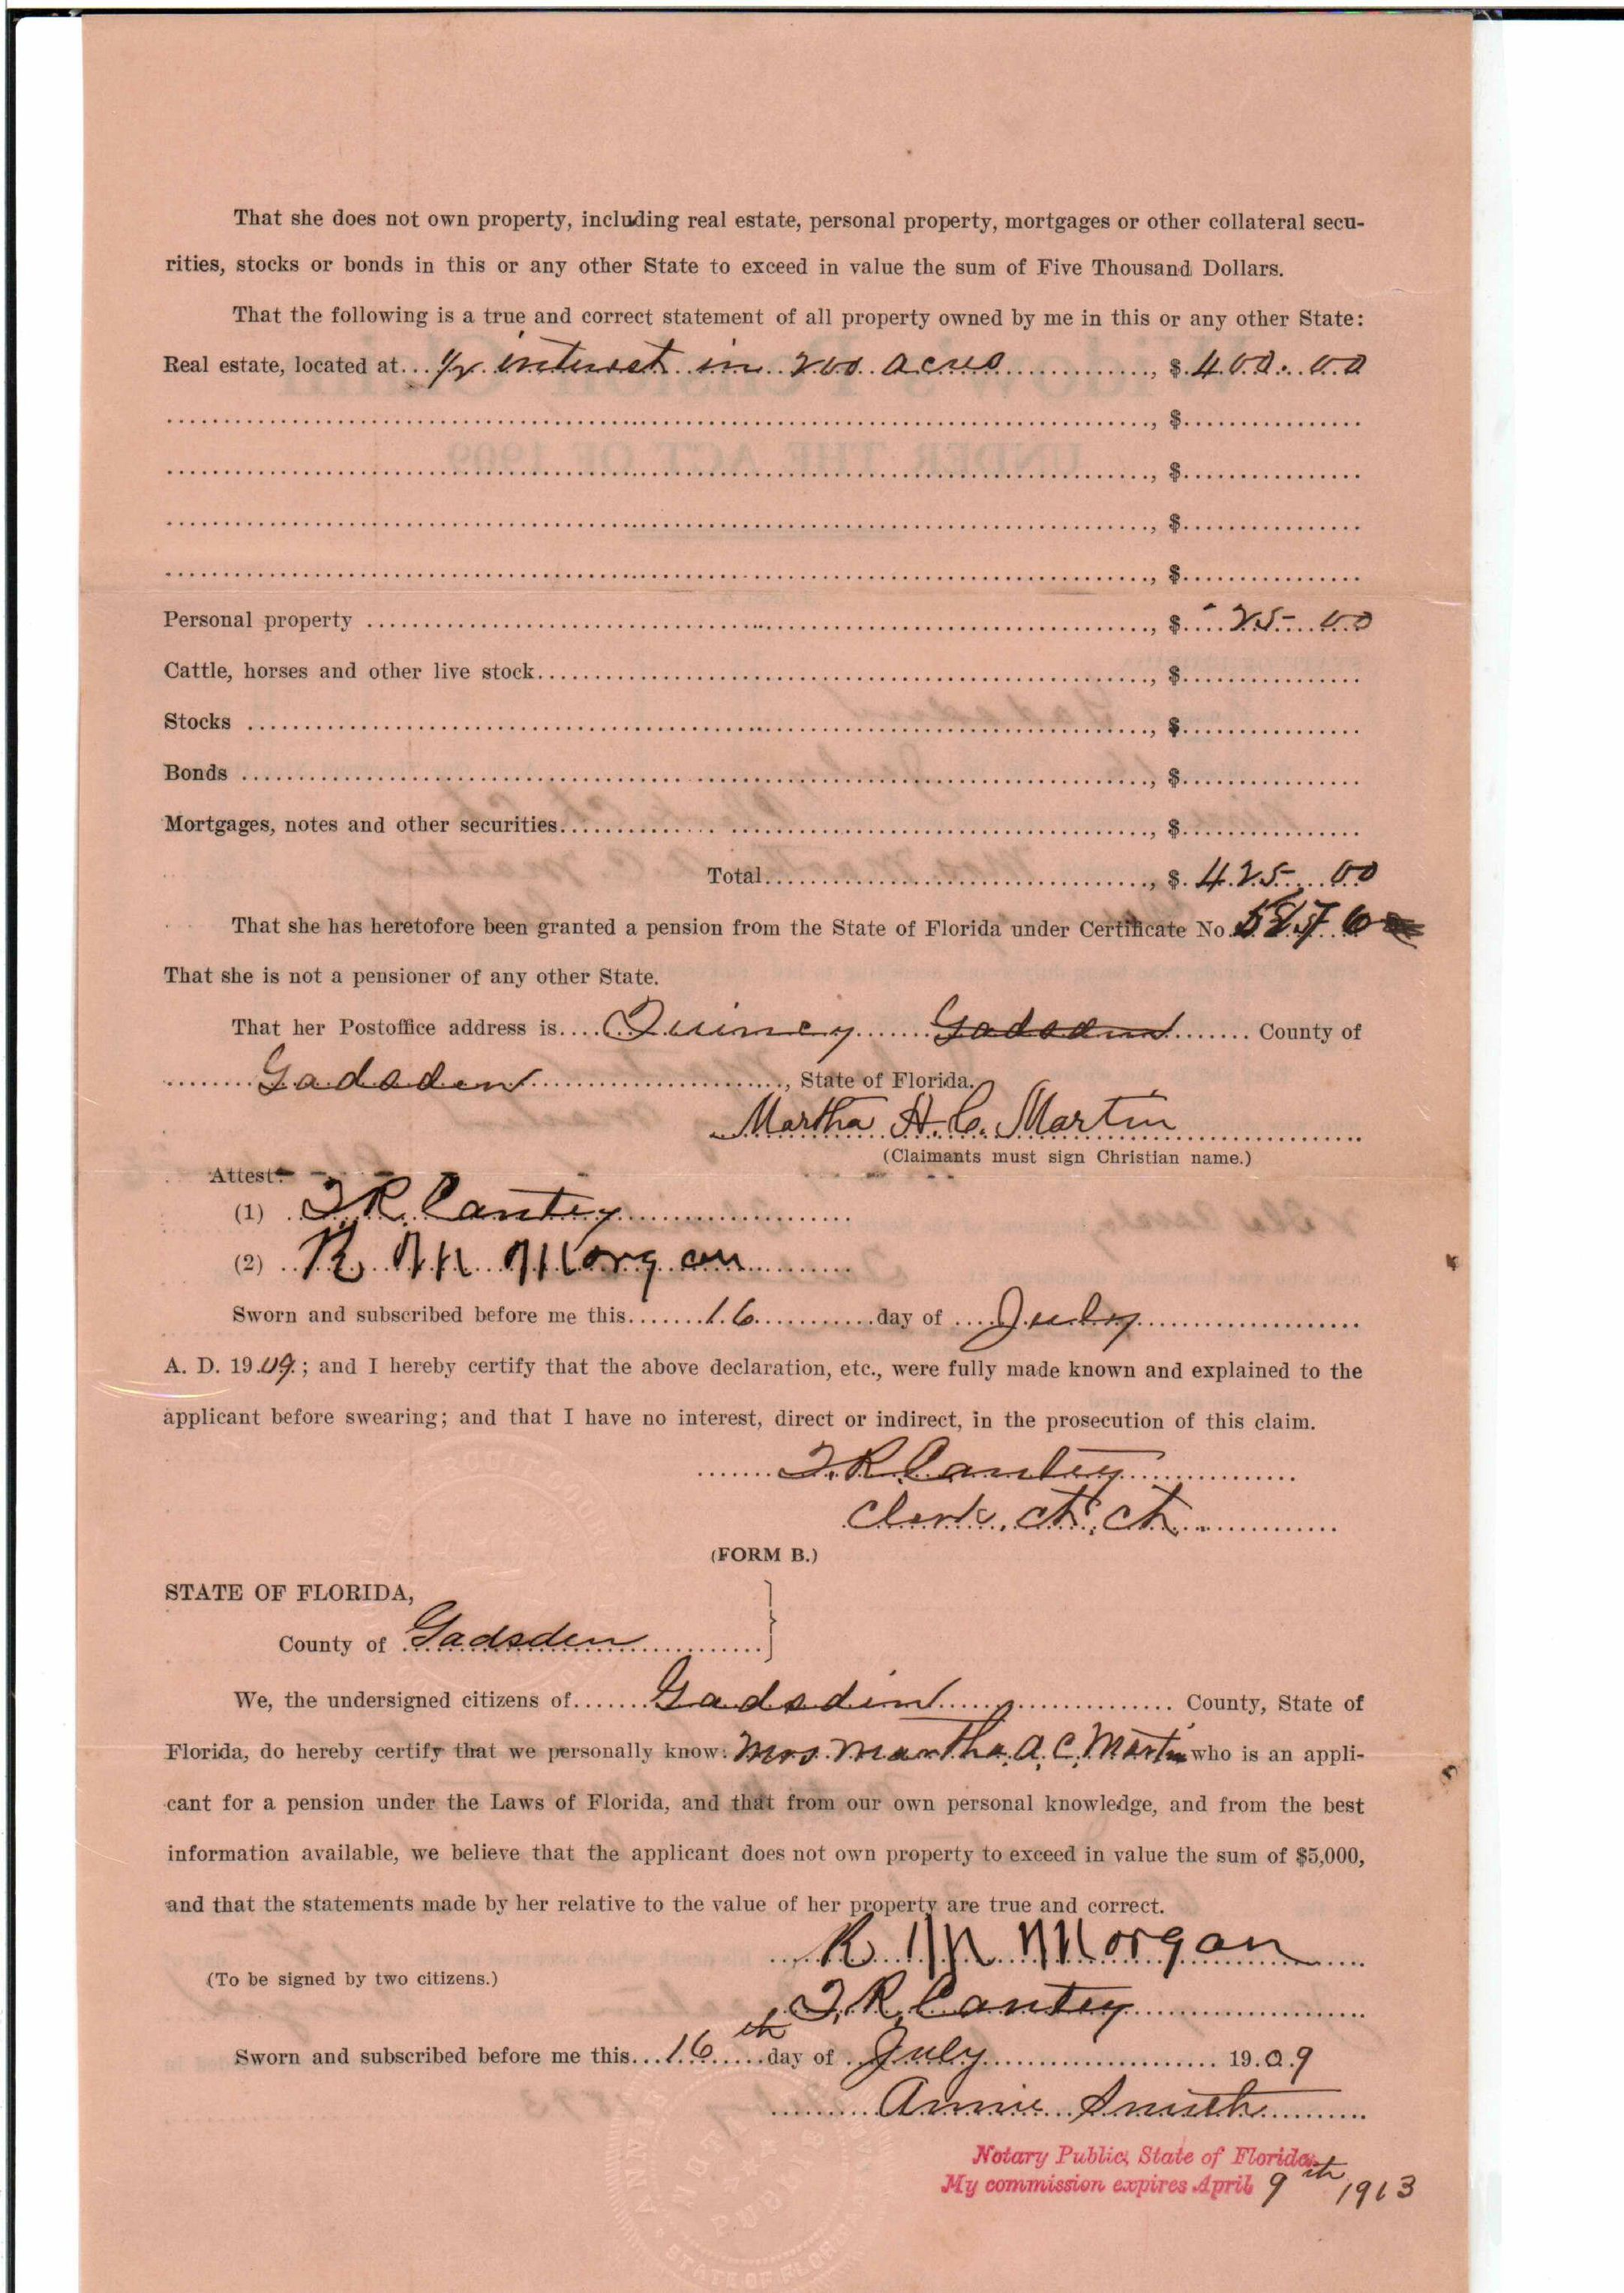 That she does not own property, including real estate, personal property, mortgages or other collateral secu-
rities, stocks or bonds in this or any other State to exceed in value the sum of Five Thousand Dollars.
That the following is a true and correct statement of all property owned by me in this or any other State:
Real estate, located at 1/2 interest in 200 acres, $ 400.00
, $
, $
, $
, $
Personal property, $ 25 00
Cattle, horses and other live stock, $
Stocks, $
Bonds, $
Mortgages, notes and other securities, $
Total, $ 425 00
That she has heretofore been granted a pension from the State of Florida under Certificate No.
That she is not a pensioner of any other State.
That her Postoffice address is Quincy Gadsden County of
Gadsden, State of Florida.
Martha A. C. Martin
(Claimants must sign Christian name.)
Attest:
(1) T. R. Cantey
(2) R Morgan
Sworn and subscribed before me this 16 day of July
A. D. 1909; and I hereby certify that the above declaration, etc., were fully made known and explained to the
applicant before swearing; and that I have no interest, direct or indirect, in the prosecution of this claim.
T. R. Cantey
Clerk, Ct. Ct.
(FORM B.)
STATE OF FLORIDA,
County of Gadsden
We, the undersigned citizens of Gadsden County, State of
Florida, do hereby certify that we personally know Mrs. Martha A. C. Martin who is an appli-
cant for a pension under the Laws of Florida, and that from our own personal knowledge, and from the best
information available, we believe that the applicant does not own property to exceed in value the sum of $5,000,
and that the statements made by her relative to the value of her property are true and correct.
R Morgan
(To be signed by two citizens.)
T. R. Cantey
Sworn and subscribed before me this 16th day of July 1909
Annie Smith
Notary Public, State of Florida.
My commission expires April 9th 1913